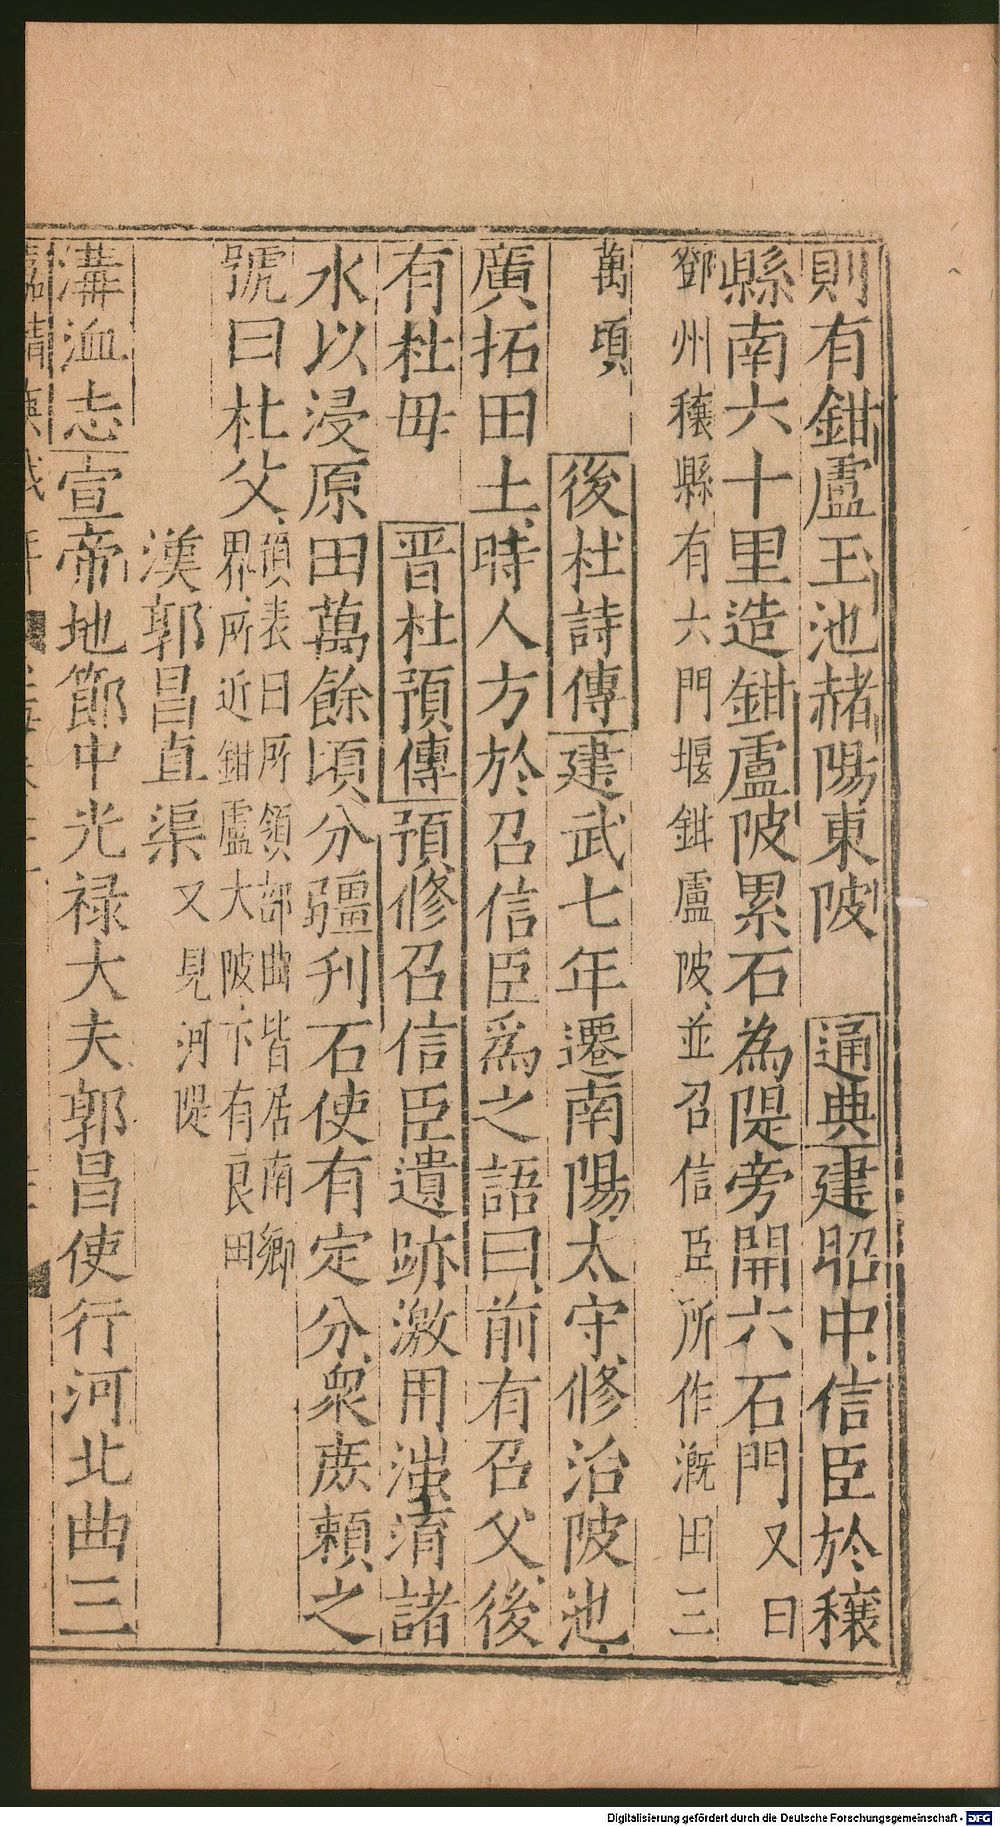 則有鉗盧玉池赭陽東陂 通典建昭中信臣於穰
縣南六十里造鉗盧陂累石為隄旁開六石門又曰
鄧州穰縣有六門堰鉗盧陂並召信臣所作漑田三
萬頃 後杜詩傳建武七年遷南陽太守修治陂池
廣拓田土時人方於召信臣爲之語曰前有召父後
有杜母 晉杜預傳預修召信臣遺跡激用滍淯諸
水以浸原田萬餘頃分疆刋石使有定分衆庶賴之
號曰杜父預表曰所領部曲皆居南鄉
界所近鉗盧大陂下有良田
漢郭昌直渠又見河隄
溝洫志宣帝地節中光禄大夫郭昌使行河北曲三
Digitalisierung gefördert durch die Deutsche Forschungsgemeinschaft - DFG